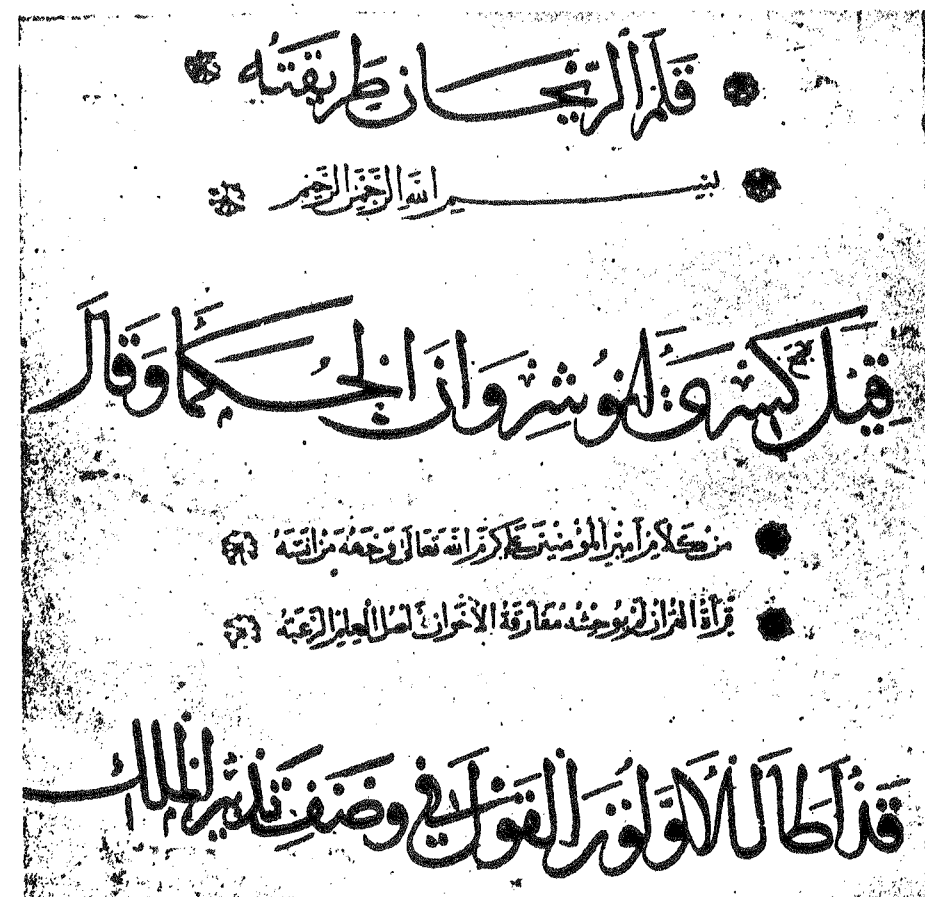 قَلَمُ الرَّيْحَانِ طَرِيقَتُهُ
بسم الله الرحمن الرحيم
قيل كسرى أنوشروان الحكما وقال
من كلام أمير المؤمنين كرم الله تعالى وجهه من آنسه
قرأة القرآن لم يوحشه مفارقة الأخوان أهل العلم
قد أطال الأولون القول في وصف تدبير الملك